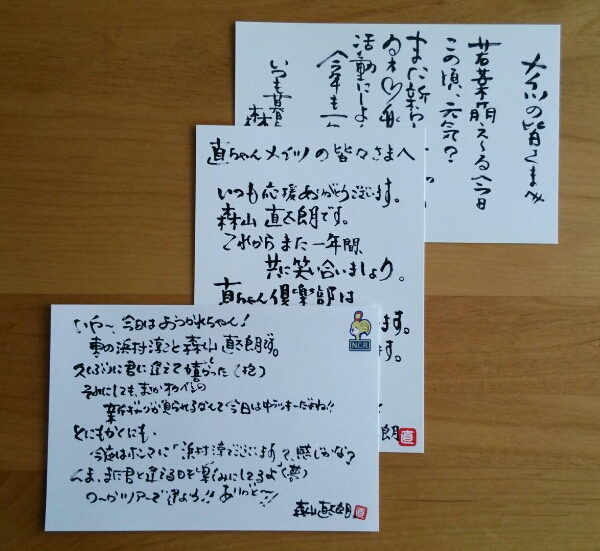 メイツの皆々さまへ
若葉萌え〜る今日
この頃、元気？
また新
活動にしよ
今年も一
いつも
森
直ちゃんメイツの皆々さまへ
いつも応援ありがとうございます。
森山直太朗です。
これからまた一年間、
共に笑い合いましょう。
直ちゃん倶楽部は
ます。
す。
朗 直
いや〜、今日はおつかれちゃん！
裏の浜村淳こと森山直太朗です。
久しぶりに君に逢えて嬉しかった（拾）
それにしても、まさか
新ギャグが見られるなんて今日は
とにもかくにも、
今度はホンマに「浜村淳でございます」で、感じかな？
んま、また君と逢える日を楽しみにしてるよ（夢）
ツアーで逢おう!! ありがと〜!!
森山直太朗 直
NCR